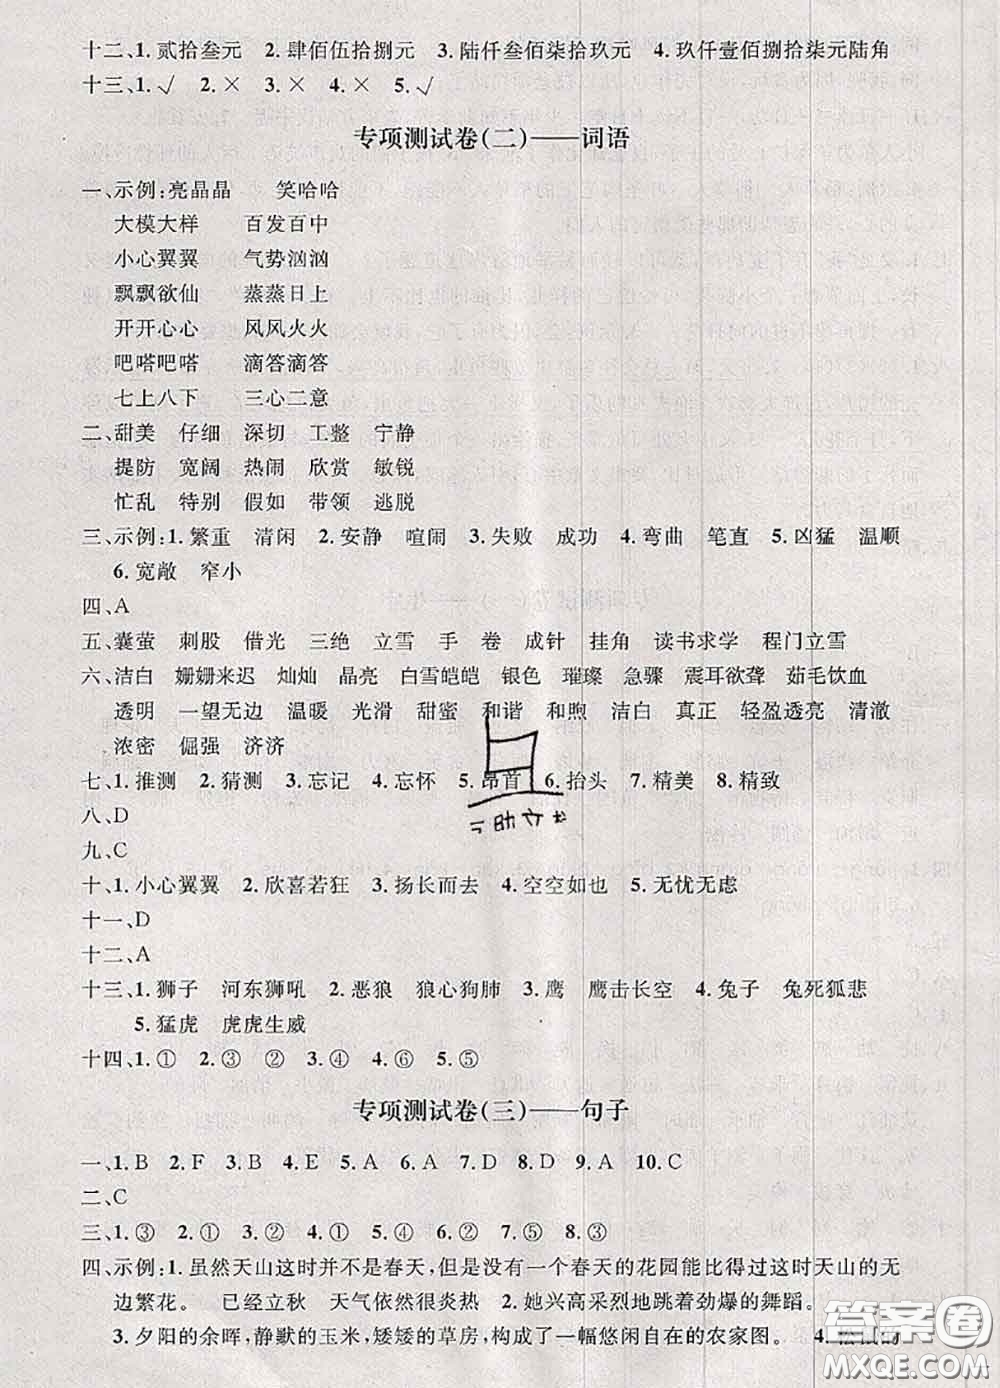 十二、1.贰拾叁元 2.肆佰伍拾捌元 3.陆仟叁佰柒拾玖元 4.玖仟壹佰捌拾柒元陆角
十三、1.√ 2.× 3.× 4.× 5.√
专项测试卷(二)——词语
一、示例:亮晶晶 笑哈哈
大模大样 百发百中
小心翼翼 气势汹汹
飘飘欲仙 蒸蒸日上
开开心心 风风火火
吧嗒吧嗒 滴答滴答
七上八下 三心二意
二、甜美 仔细 深切 工整 宁静
提防 宽阔 热闹 欣赏 敏锐
忙乱 特别 假如 带领 逃脱
三、示例:1.繁重 清闲 2.安静 喧闹 3.失败 成功 4.弯曲 笔直 5.凶猛 温顺
6.宽敞 窄小
四、A
五、囊萤 刺股 借光 三绝 立雪 手 卷 成针 挂角 读书求学 程门立雪
六、洁白 姗姗来迟 灿灿 晶亮 白雪皑皑 银色 璀璨 急骤 震耳欲聋 茹毛饮血
透明 一望无边 温暖 光滑 甜蜜 和谐 和煦 洁白 真正 轻盈透亮 清澈
浓密 倔强 济济
七、1.推测 2.猜测 3.忘记 4.忘怀 5.昂首 6.抬头 7.精美 8.精致
八、D
九、C
十、1.小心翼翼 2.欣喜若狂 3.扬长而去 4.空空如也 5.无忧无虑
十一、D
十二、A
十三、1.狮子 河东狮吼 2.恶狼 狼心狗肺 3.鹰 鹰击长空 4.兔子 兔死狐悲
5.猛虎 虎虎生威
十四、1.① 2.③ ② 3.④ 4.⑥ 5.⑤
专项测试卷(三)——句子
一、1.B 2.F 3.B 4.E 5.A 6.A 7.D 8.D 9.A 10.C
二、C
三、1.③ 2.① 3.② 4.① 5.④ 6.② 7.⑤ 8.③
四、示例:1.虽然天山这时并不是春天,但是没有一个春天的花园能比得过这时天山的无
边繁花。 已经立秋 天气依然很炎热 2.她兴高采烈地跳着劲爆的舞蹈。
3.夕阳的余晖,静默的玉米,矮矮的草房,构成了一幅悠闲自在的农家图。 4.
答案圈
MXQE.COM